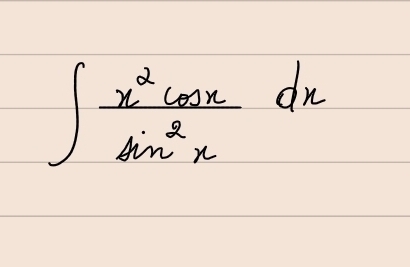 ∫ x² cosx / sin² x dx